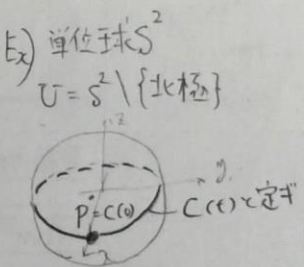 Ex) 単位球S²
U = S² \ {北極}
z
y
P = C(0)
C(t)と定す